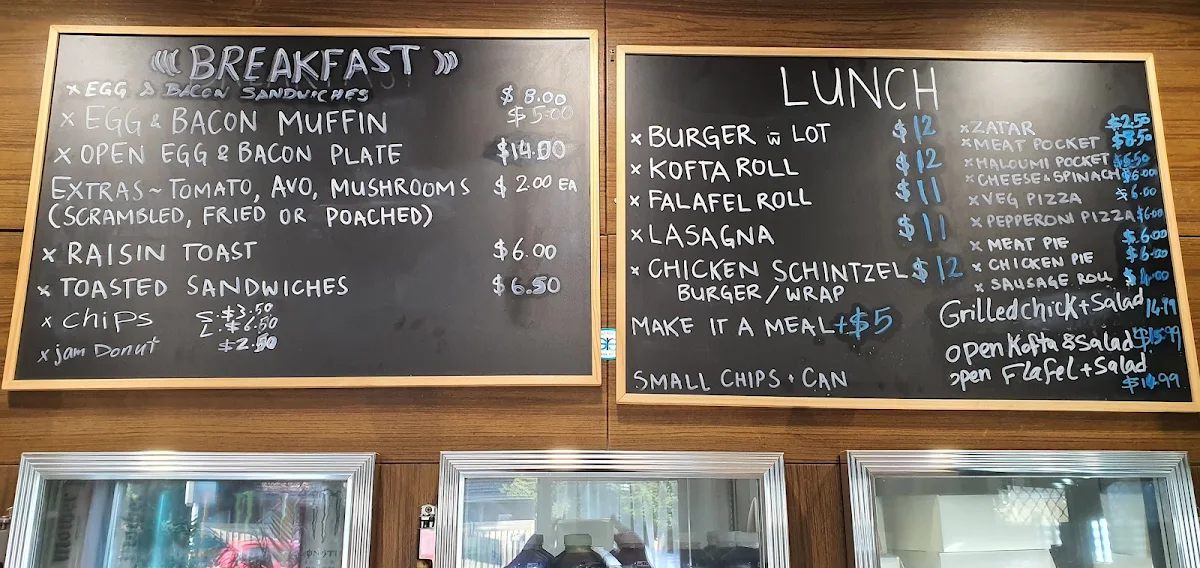 BREAKFAST
x EGG & BACON SANDWICHES $8.00
x EGG & BACON MUFFIN $5.00
x OPEN EGG & BACON PLATE $14.00
EXTRAS~TOMATO, AVO, MUSHROOMS $2.00 EA
(SCRAMBLED, FRIED OR POACHED)
x RAISIN TOAST $6.00
x TOASTED SANDWICHES $6.50
x CHIPS S.$3.50
L.$6.50
x jam Donut $2.50
LUNCH
x BURGER w̄ LOT $12
x KOFTA ROLL $12
x FALAFEL ROLL $11
x LASAGNA $11
x CHICKEN SCHINTZEL $12
BURGER/WRAP
MAKE IT A MEAL +$5
SMALL CHIPS + CAN
x ZATAR $2.50
x MEAT POCKET $8.50
x HALOUMI POCKET $6.50
x CHEESE & SPINACH $6.00
x VEG PIZZA $6.00
x PEPPERONI PIZZA $6.00
x MEAT PIE $6.00
x CHICKEN PIE $6.00
x SAUSAGE ROLL $4.00
Grilled chick+Salad 14.99
open Kofta & Salad $15.99
open Flafel+Salad
$14.99